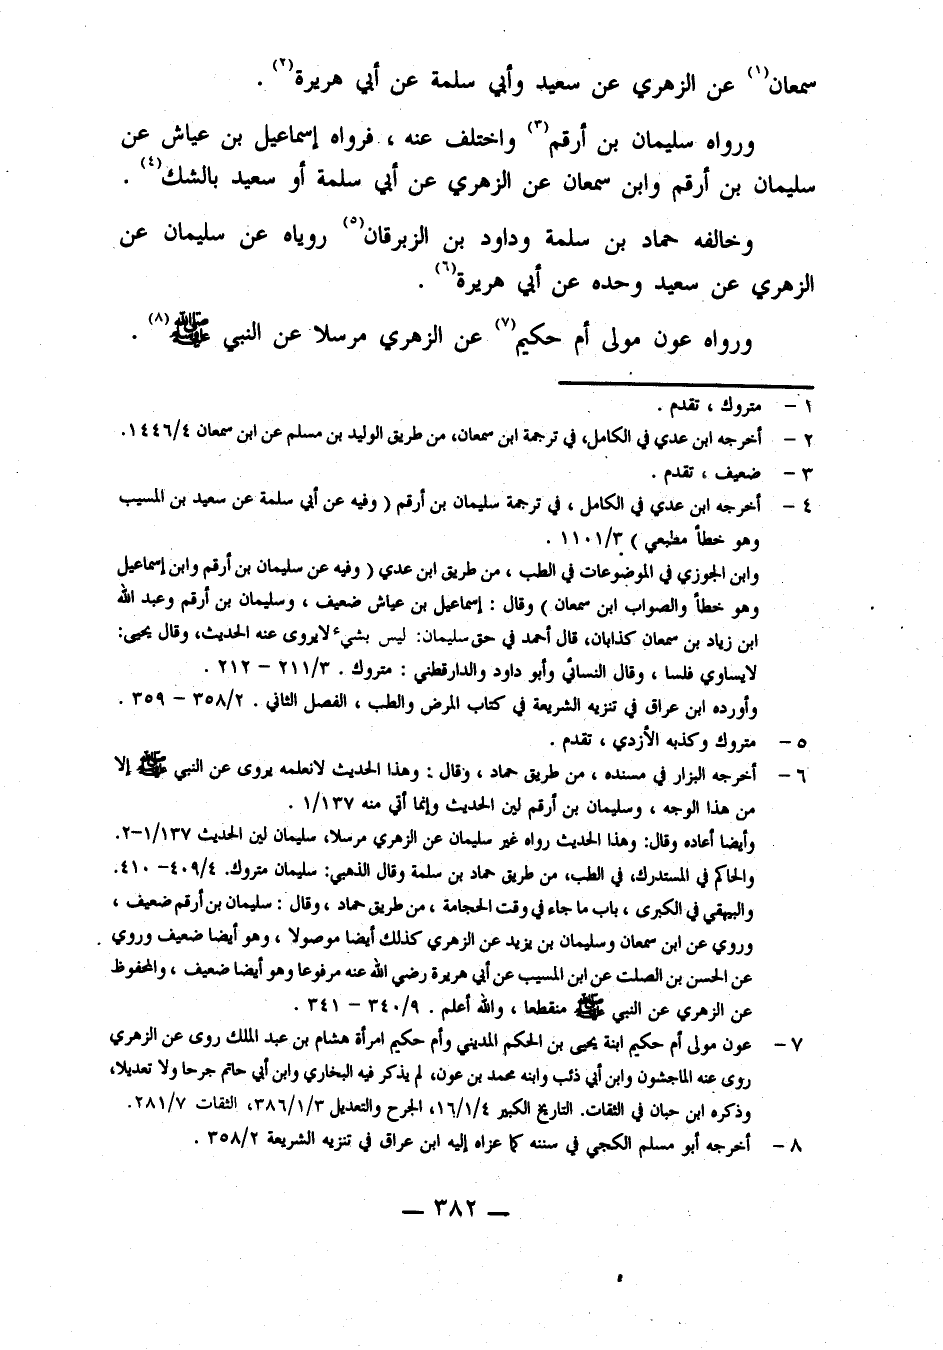 سمعان(١) عن الزهري عن سعيد وأبي سلمة عن أبي هريرة(٢) .
ورواه سليمان بن أرقم(٣) واختلف عنه ، فرواه إسماعيل بن عياش عن
سليمان بن أرقم وابن سمعان عن الزهري عن أبي سلمة أو سعيد بالشك(٤) .
وخالفه حماد بن سلمة وداود بن الزبرقان(٥) روياه عن سليمان عن
الزهري عن سعيد وحده عن أبي هريرة(٦) .
ورواه عون مولى أم حكيم(٧) عن الزهري مرسلا عن النبي ﷺ(٨) .
١ – متروك ، تقدم .
٢ – أخرجه ابن عدي في الكامل، في ترجمة ابن سمعان، من طريق الوليد بن مسلم عن ابن سمعان ١٤٤٦/٤.
٣ – ضعيف ، تقدم .
٤ – أخرجه ابن عدي في الكامل ، في ترجمة سليمان بن أرقم ( وفيه عن أبي سلمة عن سعيد بن المسيب
وهو خطأ مطبعي ) ١١٠١/٣ .
وابن الجوزي في الموضوعات في الطب ، من طريق ابن عدي ( وفيه عن سليمان بن أرقم وابن إسماعيل
وهو خطأ والصواب ابن سمعان ) وقال : إسماعيل بن عياش ضعيف ، وسليمان بن أرقم وعبد الله
ابن زياد بن سمعان كذابان، قال أحمد في حق سليمان: ليس بشيء لايروى عنه الحديث، وقال يحيى:
لايساوي فلسا ، وقال النسائي وأبو داود والدارقطني : متروك . ٢١١/٣ – ٢١٢ .
وأورده ابن عراق في تنزيه الشريعة في كتاب المرض والطب ، الفصل الثاني . ٣٥٨/٢ – ٣٥٩ .
٥ – متروك وكذبه الأزدي ، تقدم .
٦ – أخرجه البزار في مسنده ، من طريق حماد ، وقال : وهذا الحديث لانعلمه يروى عن النبي ﷺ إلا
من هذا الوجه ، وسليمان بن أرقم لين الحديث وإنما أتي منه ١/١٣٧ .
وأيضا أعاده وقال: وهذا الحديث رواه غير سليمان عن الزهري مرسلا، سليمان لين الحديث ١/١٣٧–٢.
والحاكم في المستدرك، في الطب، من طريق حماد بن سلمة وقال الذهبي: سليمان متروك. ٤٠٩/٤– ٤١٠.
والبيهقي في الكبرى ، باب ما جاء في وقت الحجامة ، من طريق حماد ، وقال : سليمان بن أرقم ضعيف ،
وروي عن ابن سمعان وسليمان بن يزيد عن الزهري كذلك أيضا موصولا ، وهو أيضا ضعيف وروي
عن الحسن بن الصلت عن ابن المسيب عن أبي هريرة رضي الله عنه مرفوعا وهو أيضا ضعيف ، والمحفوظ
عن الزهري عن النبي ﷺ منقطعا ، والله أعلم . ٣٤٠/٩ – ٣٤١ .
٧ – عون مولى أم حكيم ابنة يحيى بن الحكم المديني وأم حكيم امرأة هشام بن عبد الملك روى عن الزهري
روى عنه الماجشون وابن أبي ذئب وابنه محمد بن عون، لم يذكر فيه البخاري وابن أبي حاتم جرحا ولا تعديلا،
وذكره ابن حبان في الثقات. التاريخ الكبير ١٦/١/٤، الجرح والتعديل ٣٨٦/١/٣، الثقات ٢٨١/٧.
٨ – أخرجه أبو مسلم الكجي في سننه كما عزاه إليه ابن عراق في تنزيه الشريعة ٣٥٨/٢ .
— ٣٨٢ —